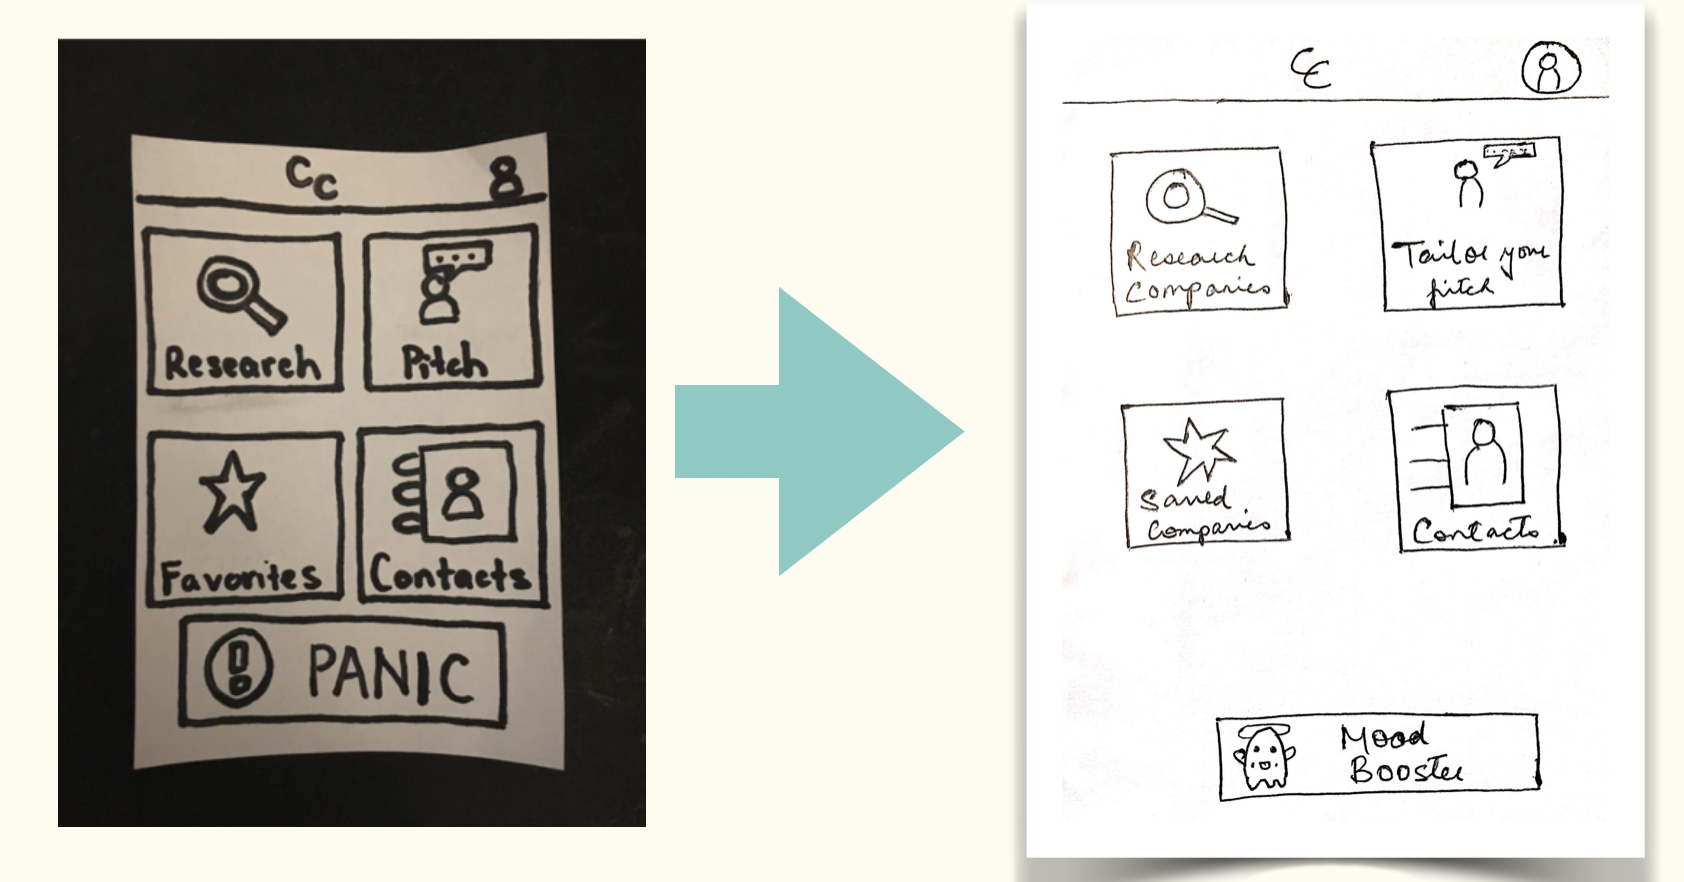 Cc
Research
Pitch
Favorites
Contacts
PANIC
CC
Research
Companies
Tailor your
pitch
Saved
Companies
Contacts
Mood
Booster